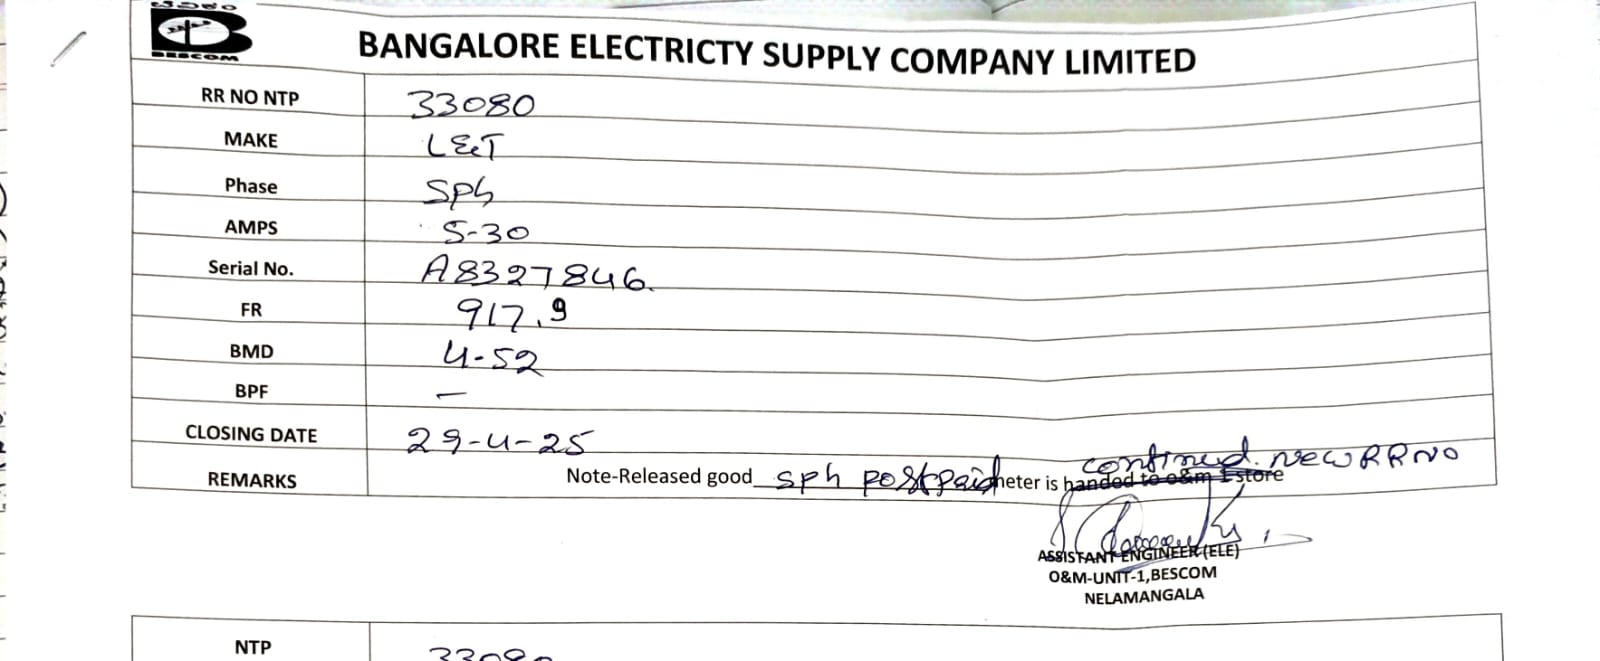 BESCOM
BANGALORE ELECTRICTY SUPPLY COMPANY LIMITED
RR NO NTP 33080
MAKE L&T
Phase Sph
AMPS 5-30
Serial No. A8327846.
FR 917.9
BMD 4-52
BPF –
CLOSING DATE 29-4-25
REMARKS Note-Released good sph postpaid meter is handed to o&m 1 store continued. new RR NO
ASSISTANT ENGINEER (ELE)
O&M-UNIT-1,BESCOM
NELAMANGALA
NTP 33080